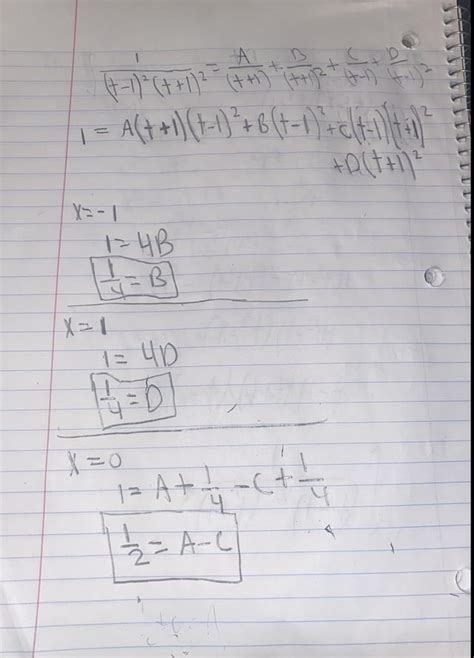 1/((t-1)²(t+1)²) = A/(t+1) + B/(t+1)² + C/(t-1) + D/(t-1)²
1 = A(t+1)(t-1)² + B(t-1)² + C(t-1)(t+1)²
+D(t+1)²
x=-1
1=4B
1/4=B
x=1
1=4D
1/4=D
x=0
1=A+1/4-C+1/4
1/2=A-C